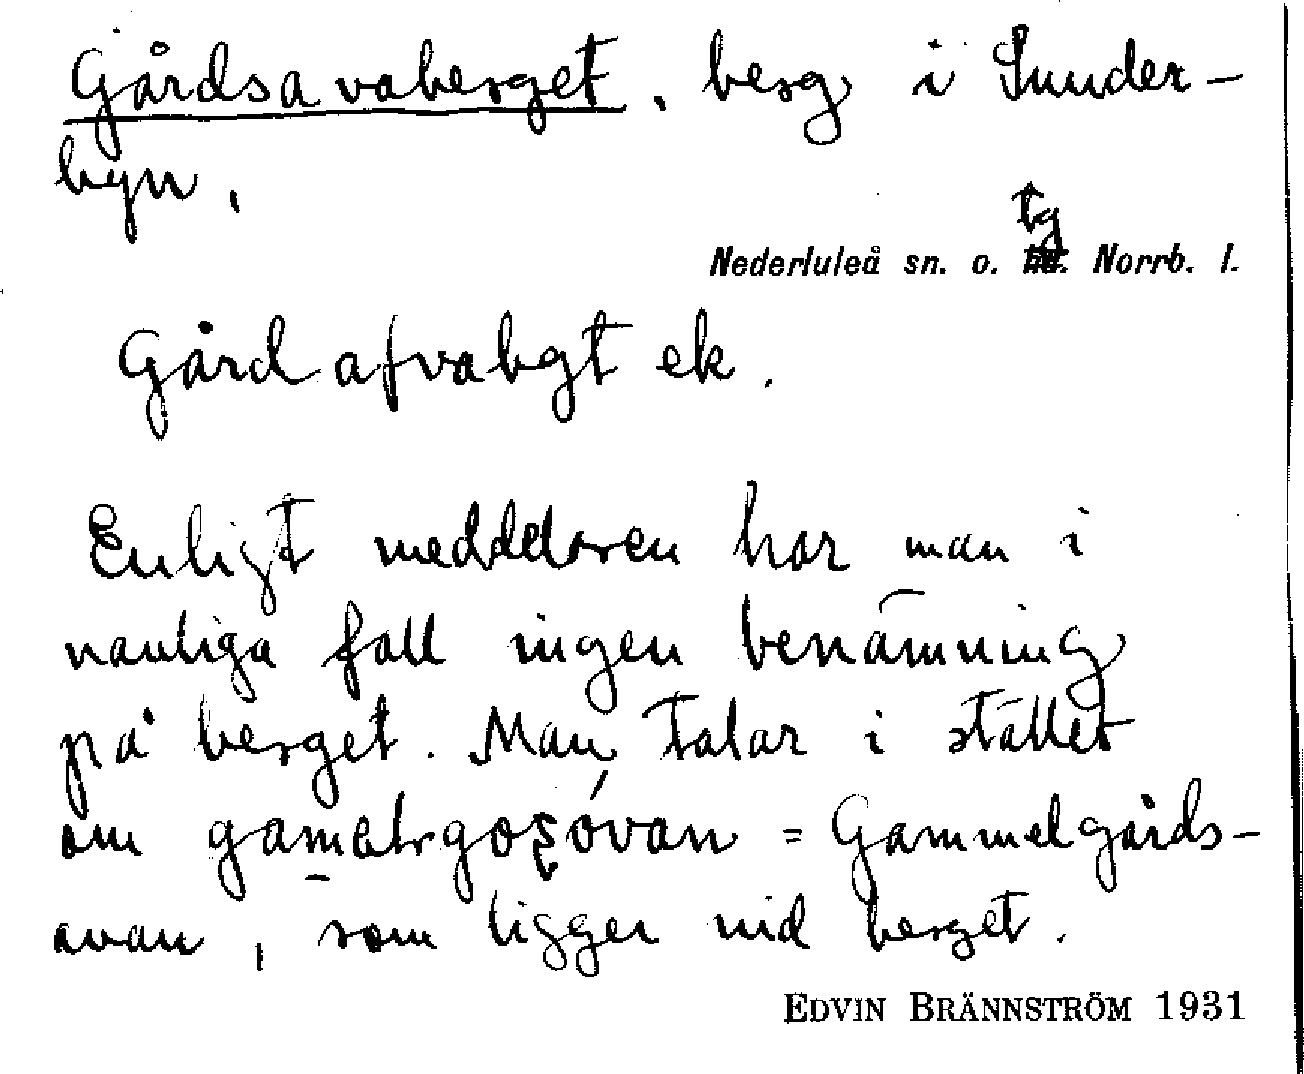 Gårdsavaberget, berg i Sunder-
byn,
tg
Nederluleå sn. o. Norrb. l.
Gårdafvabgt ek.
Enligt meddelaren har man i
vanliga fall ingen benämning
på berget. Man talar i stället
om = Gammelgårds-
avan, som ligger vid berget.
EDVIN BRÄNNSTRÖM 1931